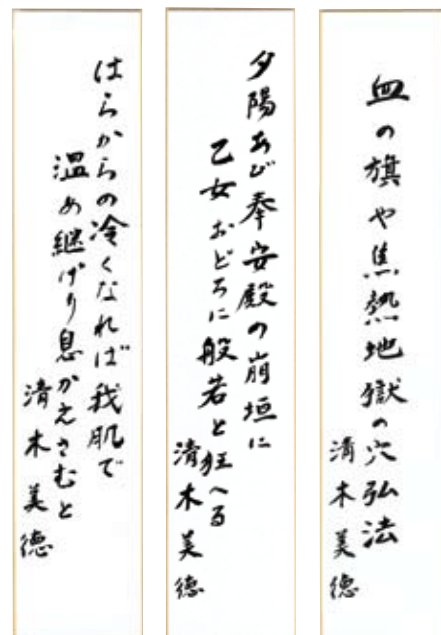 血の旗や焦熱地獄の穴弘法
清木美徳
夕陽あび奉安殿の崩垣に
乙女おどろに般若と狂へる
清木美徳
はらからの冷くなれば我肌で
温め継げり息かえさむと
清木美徳